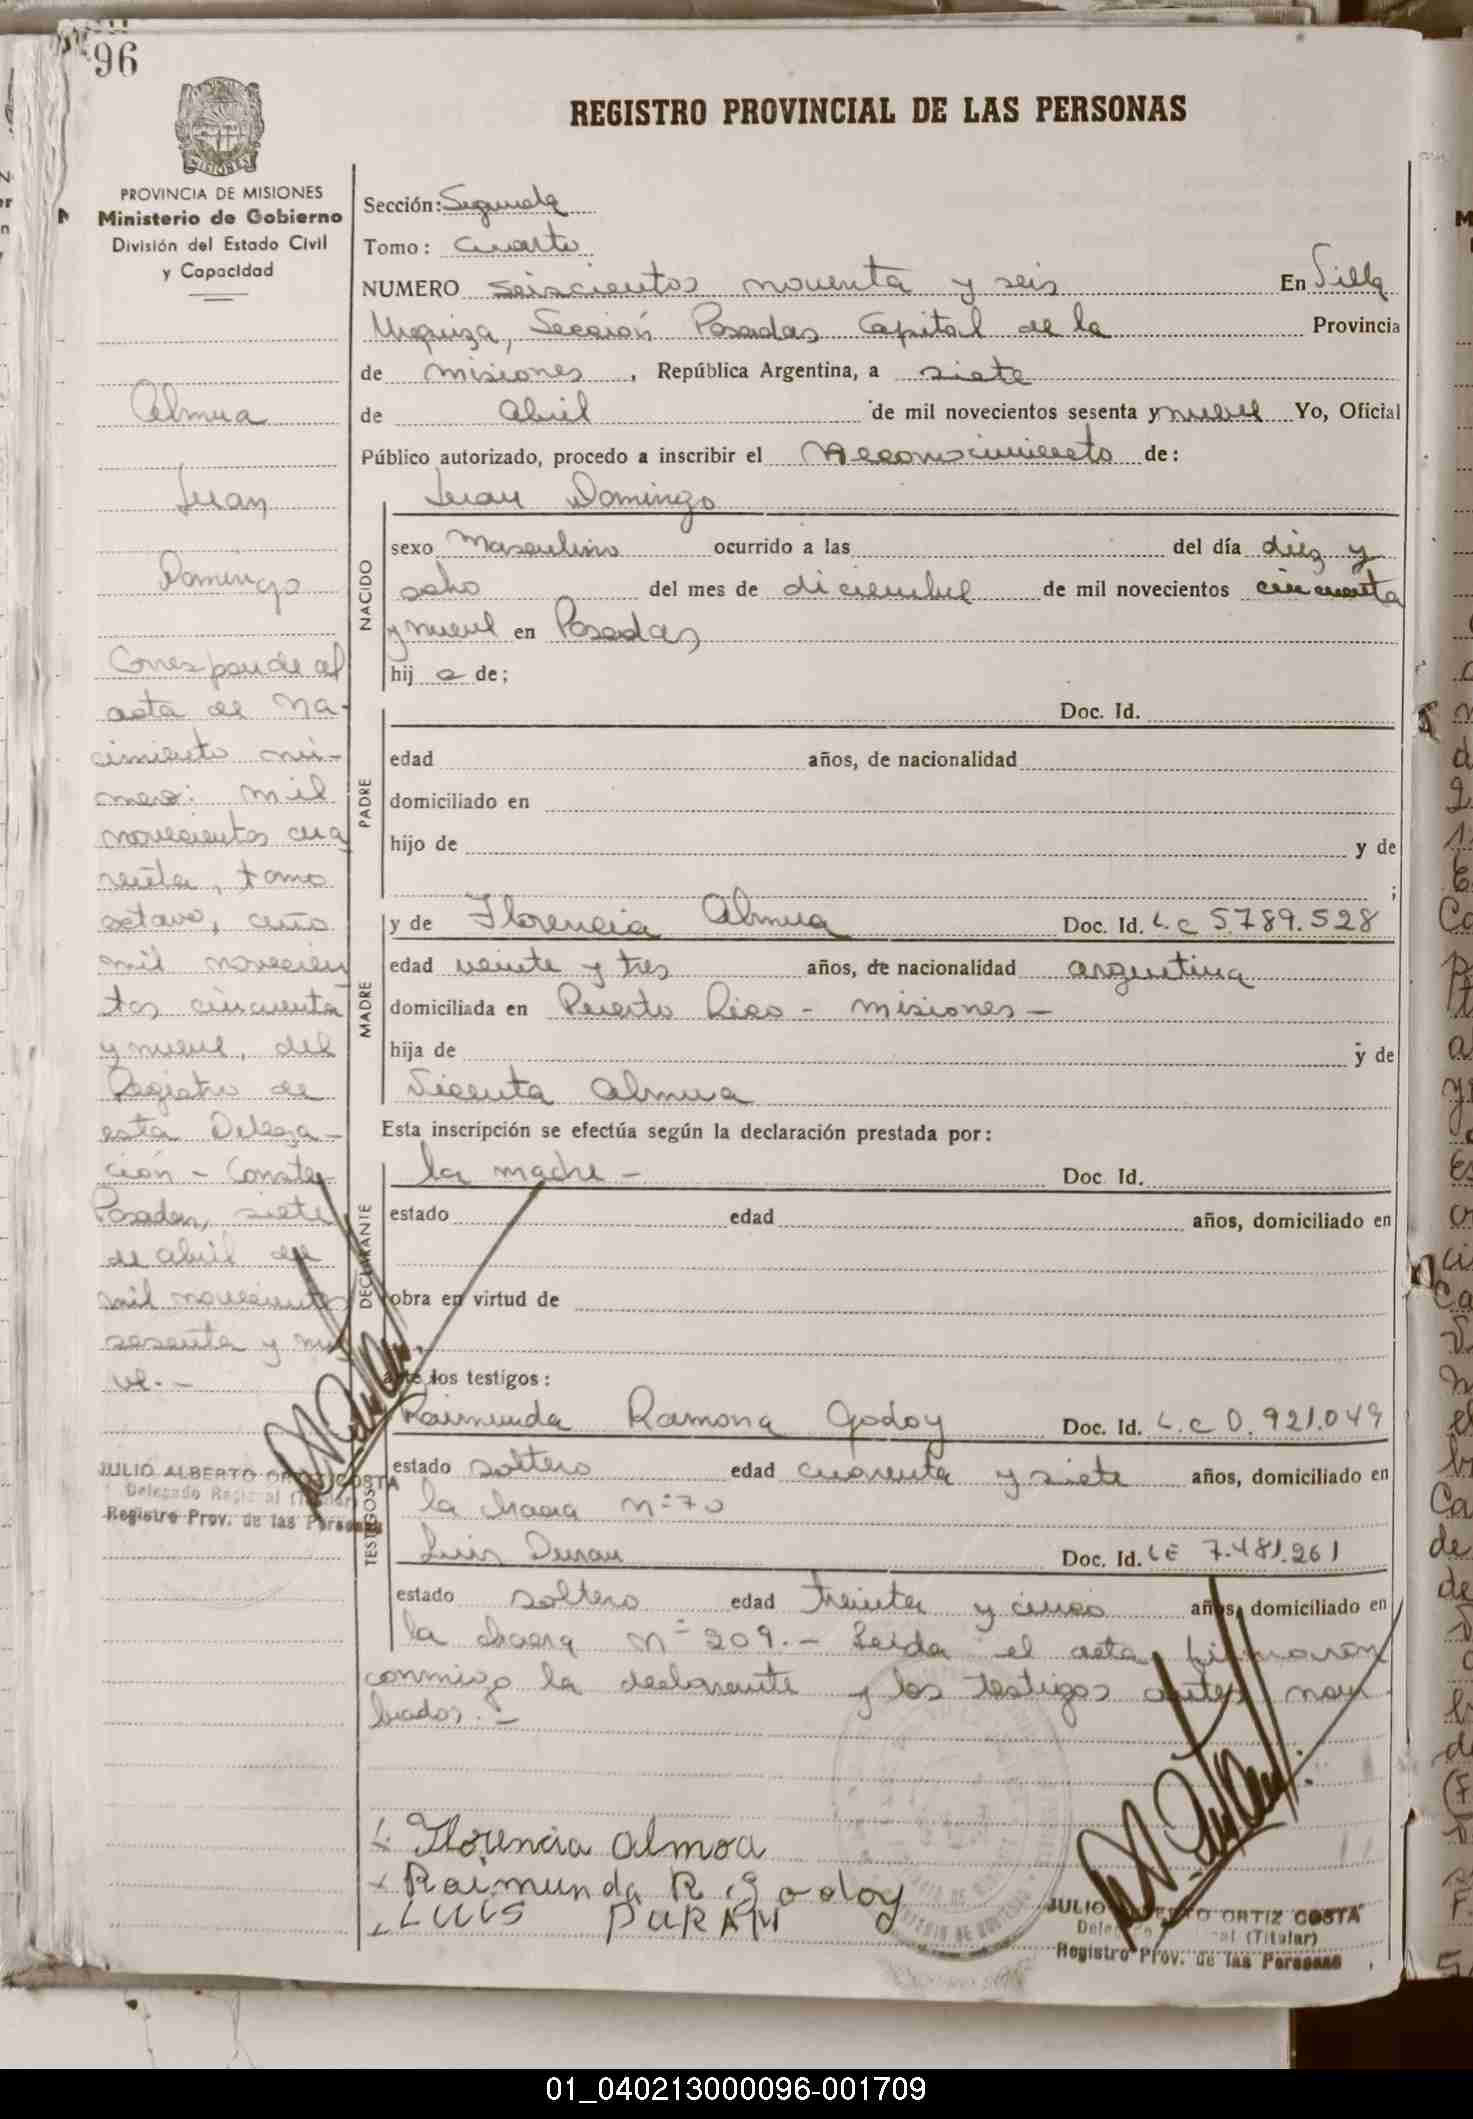 96
REGISTRO PROVINCIAL DE LAS PERSONAS
MISIONES
PROVINCIA DE MISIONES
Ministerio de Gobierno
División del Estado Civil
y Capacidad
Almua
Juan
Domingo
Corresponde al
acta de Na-
cimiento nú-
mero: mil
novecientos cua
renta, tomo
octavo, año
mil novecien
tos cincuenta
y nueve, del
Registro de
esta Delega-
ción - Conste
Posadas, siete
de abril de
mil novecientos
sesenta y nue
ve.-
JULIO ALBERTO ORTIZ COSTA
Delegado Regional (Titular)
Registro Prov. de las Personas
Sección: Segunda
Tomo: Cuarto
NUMERO seiscientos noventa y seis En Villa
Urquiza, Sección Posadas Capital de la Provincia
de misiones, República Argentina, a siete
de Abril de mil novecientos sesenta y nueve Yo, Oficial
Público autorizado, procedo a inscribir el Reconocimiento de:
NACIDO
Juan Domingo
sexo Masculino ocurrido a las del día diez y
ocho del mes de diciembre de mil novecientos cincuenta
y nueve en Posadas
hij o de;
PADRE
Doc. Id.
edad años, de nacionalidad
domiciliado en
hijo de y de
;
MADRE
y de Florencia Almua Doc. Id. L.C 5.789.528
edad veinte y tres años, de nacionalidad argentina
domiciliada en Puerto Rico - misiones -
hija de y de
Vicenta Almua
Esta inscripción se efectúa según la declaración prestada por:
DECLARANTE
la madre - Doc. Id.
estado edad años, domiciliado en
obra en virtud de
ante los testigos:
TESTIGOS
Raimunda Ramona Godoy Doc. Id. L.C 0.921.049
estado soltera edad cuarenta y siete años, domiciliado en
la chacra n=70
Luis Duran Doc. Id. LE 7.481.261
estado soltero edad treinta y cinco años, domiciliado en
la chacra n=209.- Leida el acta firmaron
conmigo la declarante y los testigos antes nom
brados.-
Florencia almoa
Raimunda R. Godoy
LUIS DURAN
JULIO ALBERTO ORTIZ COSTA
Delegado Regional (Titular)
Registro Prov. de las Personas
01_040213000096-001709